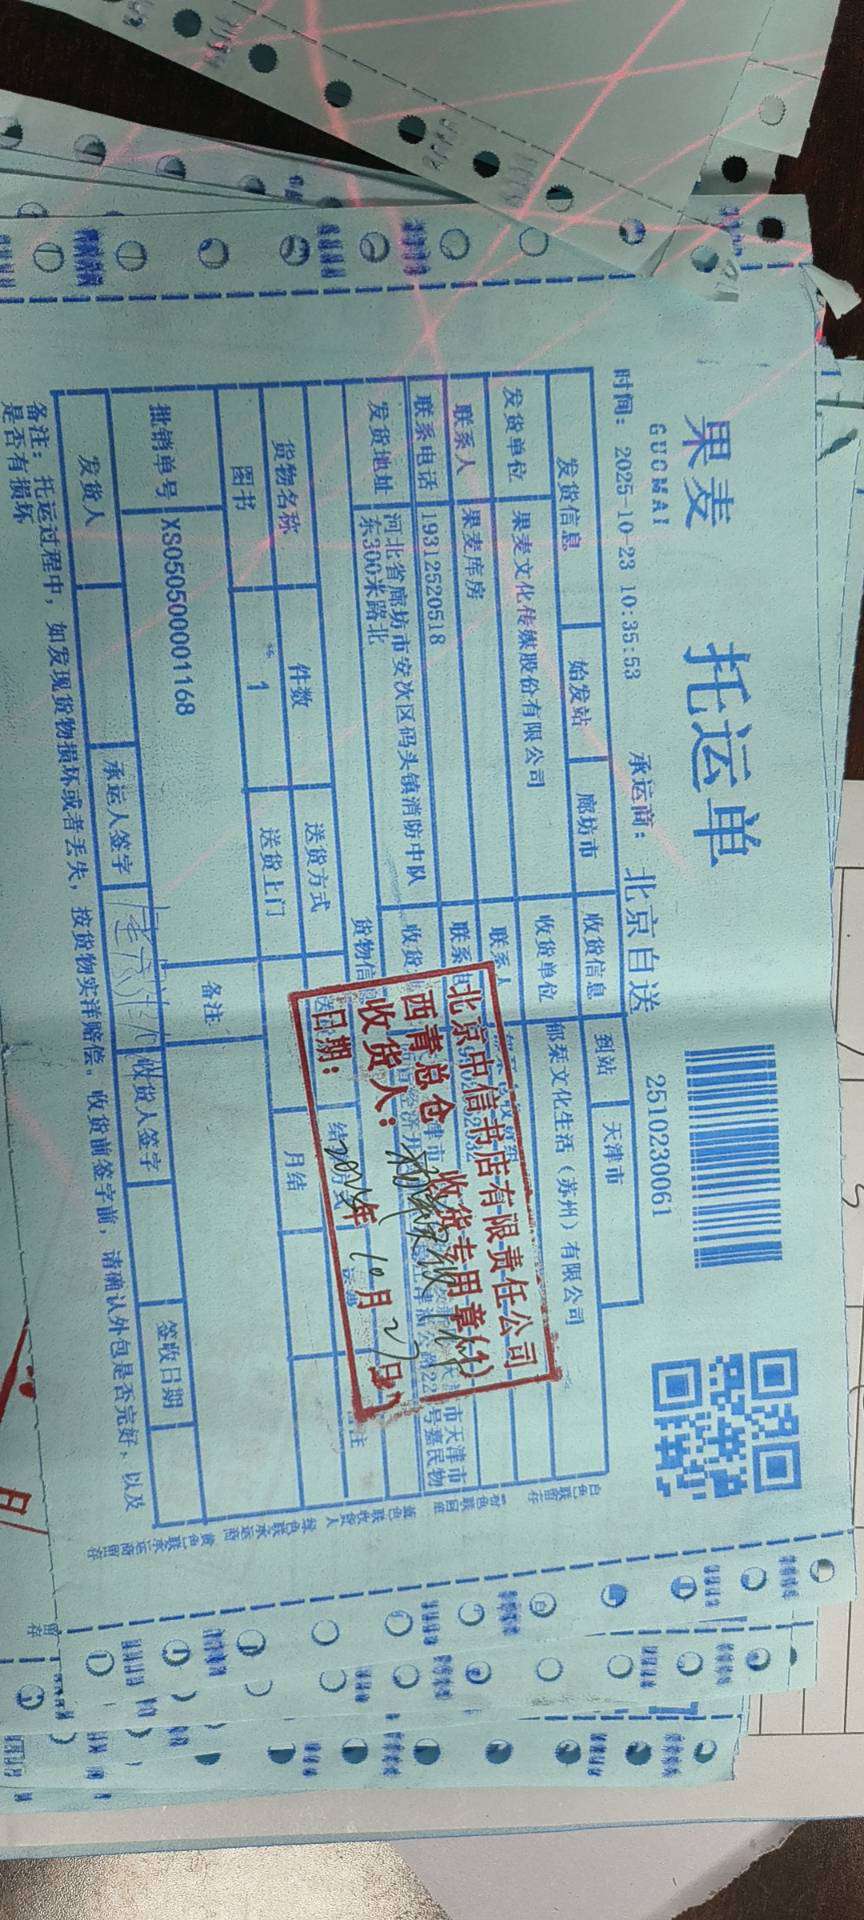 果麦
GUOMAI
托运单
2510230061
时间: 2025-10-23 10:35:53
承运商: 北京自送
发货信息 始发站 廊坊市 收货信息 到站 天津市
发货单位 果麦文化传媒股份有限公司 收货单位 郁栞文化生活(苏州)有限公司
联系人 果麦库房 联系人
联系电话 19312520518 联系电
发货地址 河北省廊坊市安次区码头镇消防中队 收货
东300米路北
市天津市
号嘉民物
货物信息
货物名称 件数 送货方式
图书 1 送货上门 月结
批销单号 XS050500001168 备注
发货人 承运人签字 收货人签字 签收日期
备注: 托运过程中, 如发现货物损坏或者丢失, 按货物实洋赔偿。收货前签字前, 请确认外包是否完好, 以及
是否有损坏
北京中信书店有限责任公司
西青总仓 收货专用章(1)
收货人:
日期: 2025年 10月 27日
白色联留存
粉色联回单
蓝色联收货人
绿色联承运商
黄色联承运商留存